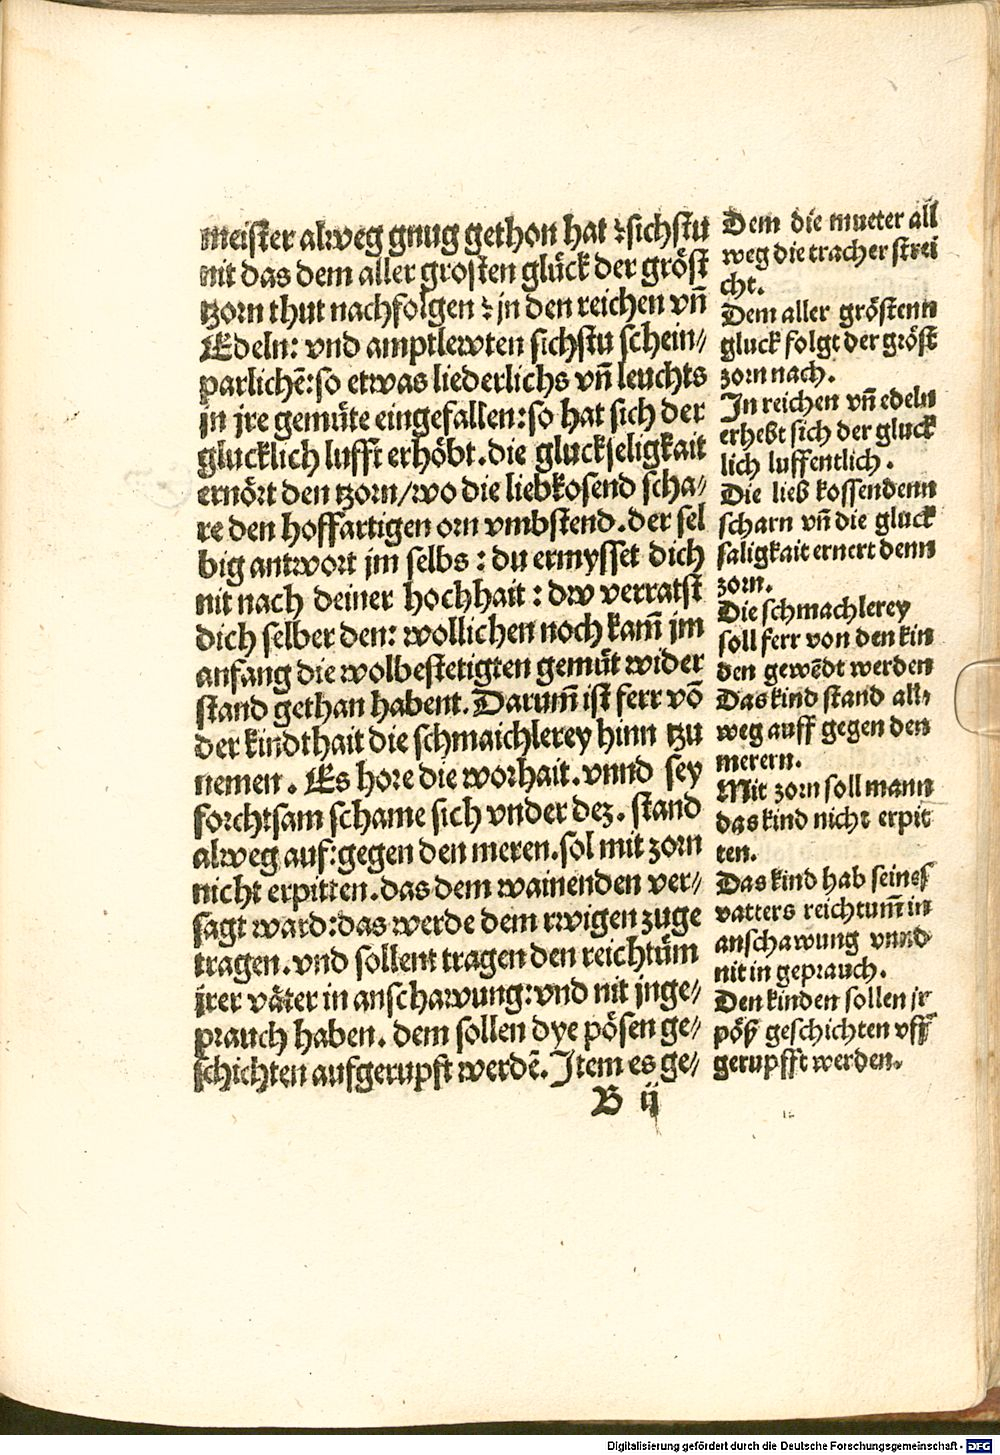 meister alweg gnug gethon hat ꝛ sichstu
nit das dem aller grosten glück der gröst
tzorn thut nachfolgen ꝛ jn den reichen vn̄
Edeln: vnd amptlewten sichstu schein/
parlichē: so etwas liederlichs vn̄ leuchts
jn jre gemüte eingefallen: so hat sich der
glucklich lufft erhöbt. die gluckseligkait
ernört den tzorn/ wo die liebkosend scha/
re den hoffartigen orn vmbstend. der sel
big antwort jm selbs: du ermysset dich
nit nach deiner hochhait: dw verratst
dich selber den: wollichen noch kam̄ jm
anfang die wolbestetigten gemüt wider
stand gethan habent. Darum̄ ist ferr vō
der kindthait die schmaichlerey hinn tzu
nemen. Es hore die worhait. vnnd sey
forchtsam schame sich vnder dez. stand
alweg auf: gegen den meren. sol mit zorn
nicht erpitten. das dem wainenden ver/
sagt ward: das werde dem rwigen zuge
tragen. vnd sollent tragen den reichtüm
jrer väter in anschawung: vnd nit jnge/
prauch haben. dem sollen dye pösen ge/
schichten aufgerupft werdē. Item es ge/
B ij
Dem die mueter all
weg die tracher strei
cht.
Dem aller gröstenn
gluck folgt der gröst
zorn nach.
In reichen vn̄ edeln
erhebt sich der gluck
lich luffentlich.
Die lieb kossendenn
scharn vn̄ die gluck
saligkait ernert denn
zorn.
Die schmachlerey
soll ferr von den kin
den gewēdt werden
Das kind stand all/
weg auff gegen den
merern.
Mit zorn soll mann
das kind nicht erpit
ten.
Das kind hab seines
vatters reichtum̄ in
anschawung vnnd
nit in geprauch.
Den kinden sollen jr
pöß geschichten vff
gerupfft werden.
Digitalisierung gefördert durch die Deutsche Forschungsgemeinschaft - DFG